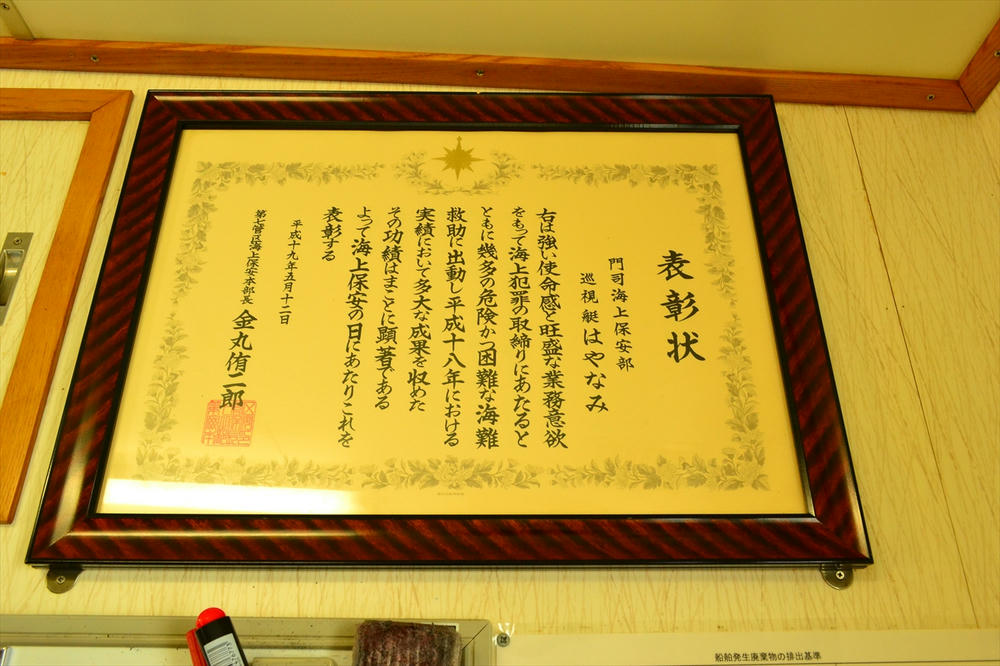 表彰状
門司海上保安部
巡視艇はやなみ
右は強い使命感と旺盛な業務意欲
をもって海上犯罪の取締りにあたると
ともに幾多の危険かつ困難な海難
救助に出動し平成十八年における
実績において多大な成果を収めた
その功績はまことに顕著である
よって海上保安の日にあたりこれを
表彰する
平成十九年五月十二日
第七管区海上保安本部長 金丸侑二郎
船舶発生廃棄物の排出基準